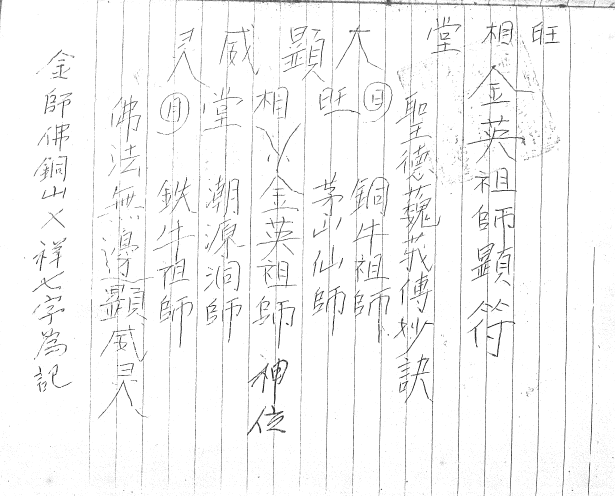 旺相堂
金英祖師顯符
聖德巍莪傳妙訣
大顯威灵
日 銅牛祖師
旺 茅山仙師
相 金英祖師 神位
堂 潮源洞師
月 鉄牛祖師
佛法無邊顯威灵
金師佛銅山乂祥七字為記